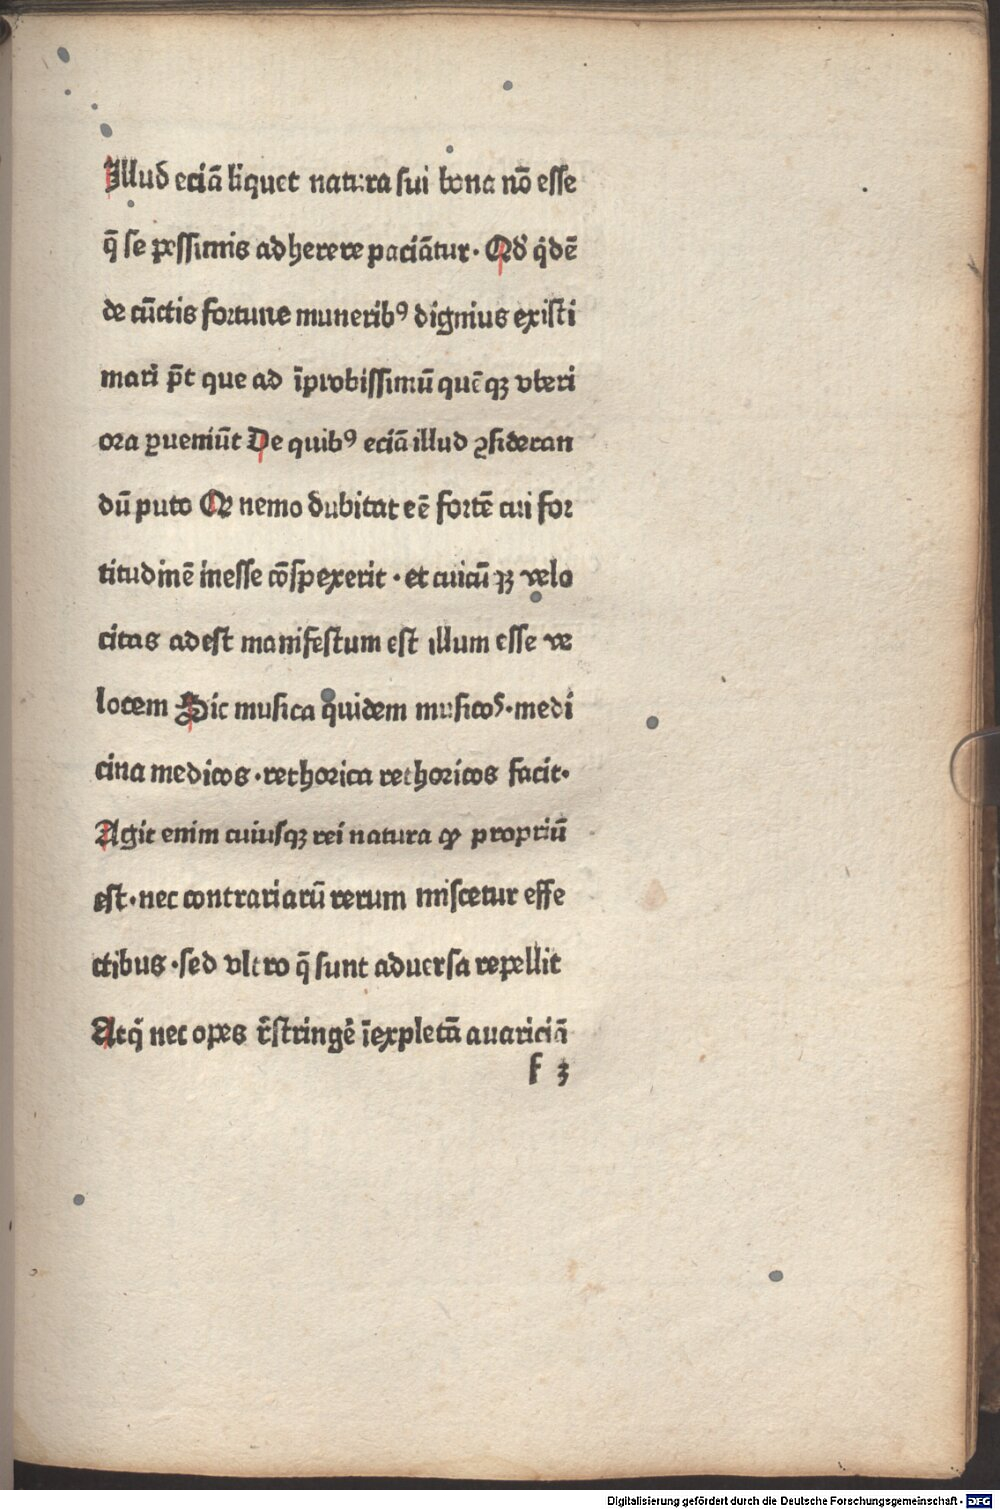 Illud eciã liquet natura sui bona nõ esse
q̃ se pessimis adherere paciãtur· Qđ q̇dẽ
de cũctis fortune muneribꝰ dignius existi
mari p̃t que ad ĩprobissimũ quẽqꝫ vberi
ora ꝑueniũt De quibꝰ eciã illud ꝯsideran
dũ puto Qꝛ nemo dubitat eẽ fortẽ cui for
titudinẽ inesse cõspexerit · et cuicũqꝫ velo
citas adest manifestum est illum esse ve
locem Sic musica quidem musicos·medi
cina medicos·rethorica rethoricos facit·
Agit enim cuiusqꝫ rei natura ꝙ propriũ
est·nec contrariarũ rerum miscetur effe
ctibus ·sed vltro q̃ sunt aduersa repellit
Atq̇ nec opes r̃stringẽ ĩexpletã auariciã
f 3
Digitalisierung gefördert durch die Deutsche Forschungsgemeinschaft - DFG